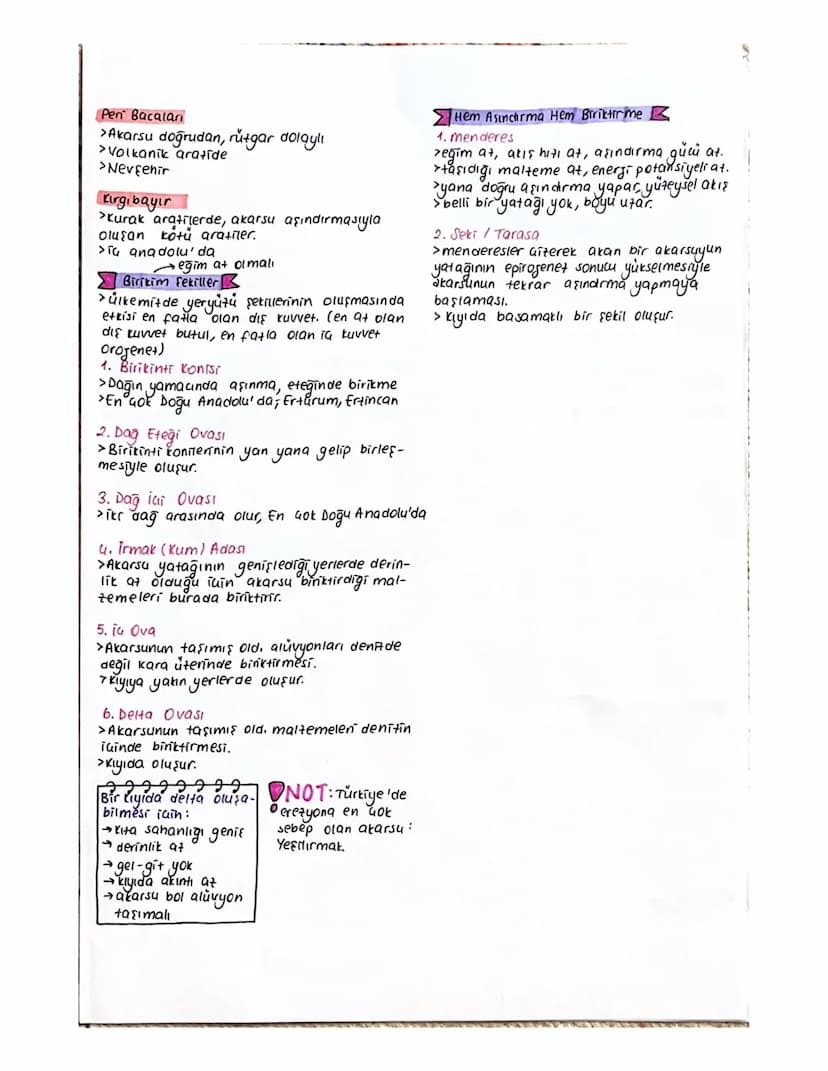 Peri Bacaları
>Akarsu doğrudan, rüzgar dolaylı
>Volkanik arazide
>Nevşehir
Kırgıbayır
>kurak arazilerde, akarsu aşındırmasıyla
oluşan kötü araziler.
>iç anadolu'da
→eğim az olmalı
Birikim Şekiller
>ülkemizde yeryüzü şekillerinin oluşmasında
etkisi en fazla olan dış kuvvet. (en az olan
dış kuvvet buzul, en fazla olan iç kuvvet
orojenez)
1. Birikinti Konisi
>Dağın yamacında aşınma, eteğinde birikme
>En çok Doğu Anadolu'da; Erzurum, Erzincan
2. Dağ Eteği Ovası
>Birikinti konilerinin yan yana gelip birleş-
mesiyle oluşur.
3. Dağ içi Ovası
>iki dağ arasında olur, En çok Doğu Anadolu'da
4. Irmak (Kum) Adası
>Akarsu yatağının genişlediği yerlerde derin-
lik az olduğu için akarsu biriktirdiği mal-
zemeleri burada biriktirir.
5. iç Ova
>Akarsunun taşımış old. alüvyonları denizde
değil kara üzerinde biriktirmesi.
>kıyıya yakın yerlerde oluşur.
6. Delta Ovası
>Akarsunun taşımış old. malzemeleri denizin
içinde biriktirmesi.
>Kıyıda oluşur.
Bir kıyıda delta oluşa-
bilmesi için:
→kıta sahanlığı geniş
→derinlik az
→gel-git yok
→kıyıda akıntı az
→akarsu bol alüvyon
taşımalı
NOT: Türkiye'de
erezyona en çok
sebep olan akarsu:
Yeşilırmak.
Hem Aşındırma Hem Biriktirme
1. menderes
>eğim az, akış hızı az, aşındırma gücü az.
>taşıdığı malzeme az, enerji potansiyeli az.
>yana doğru aşındırma yapar, yüzeysel akış
>belli bir yatağı yok, boyu uzar.
2. Seki / Taraça
>menderesler çizerek akan bir akarsuyun
yatağının epirojenez sonucu yükselmesiyle
akarsunun tekrar aşındırma yapmaya
başlaması.
> kıyıda basamaklı bir şekil oluşur.